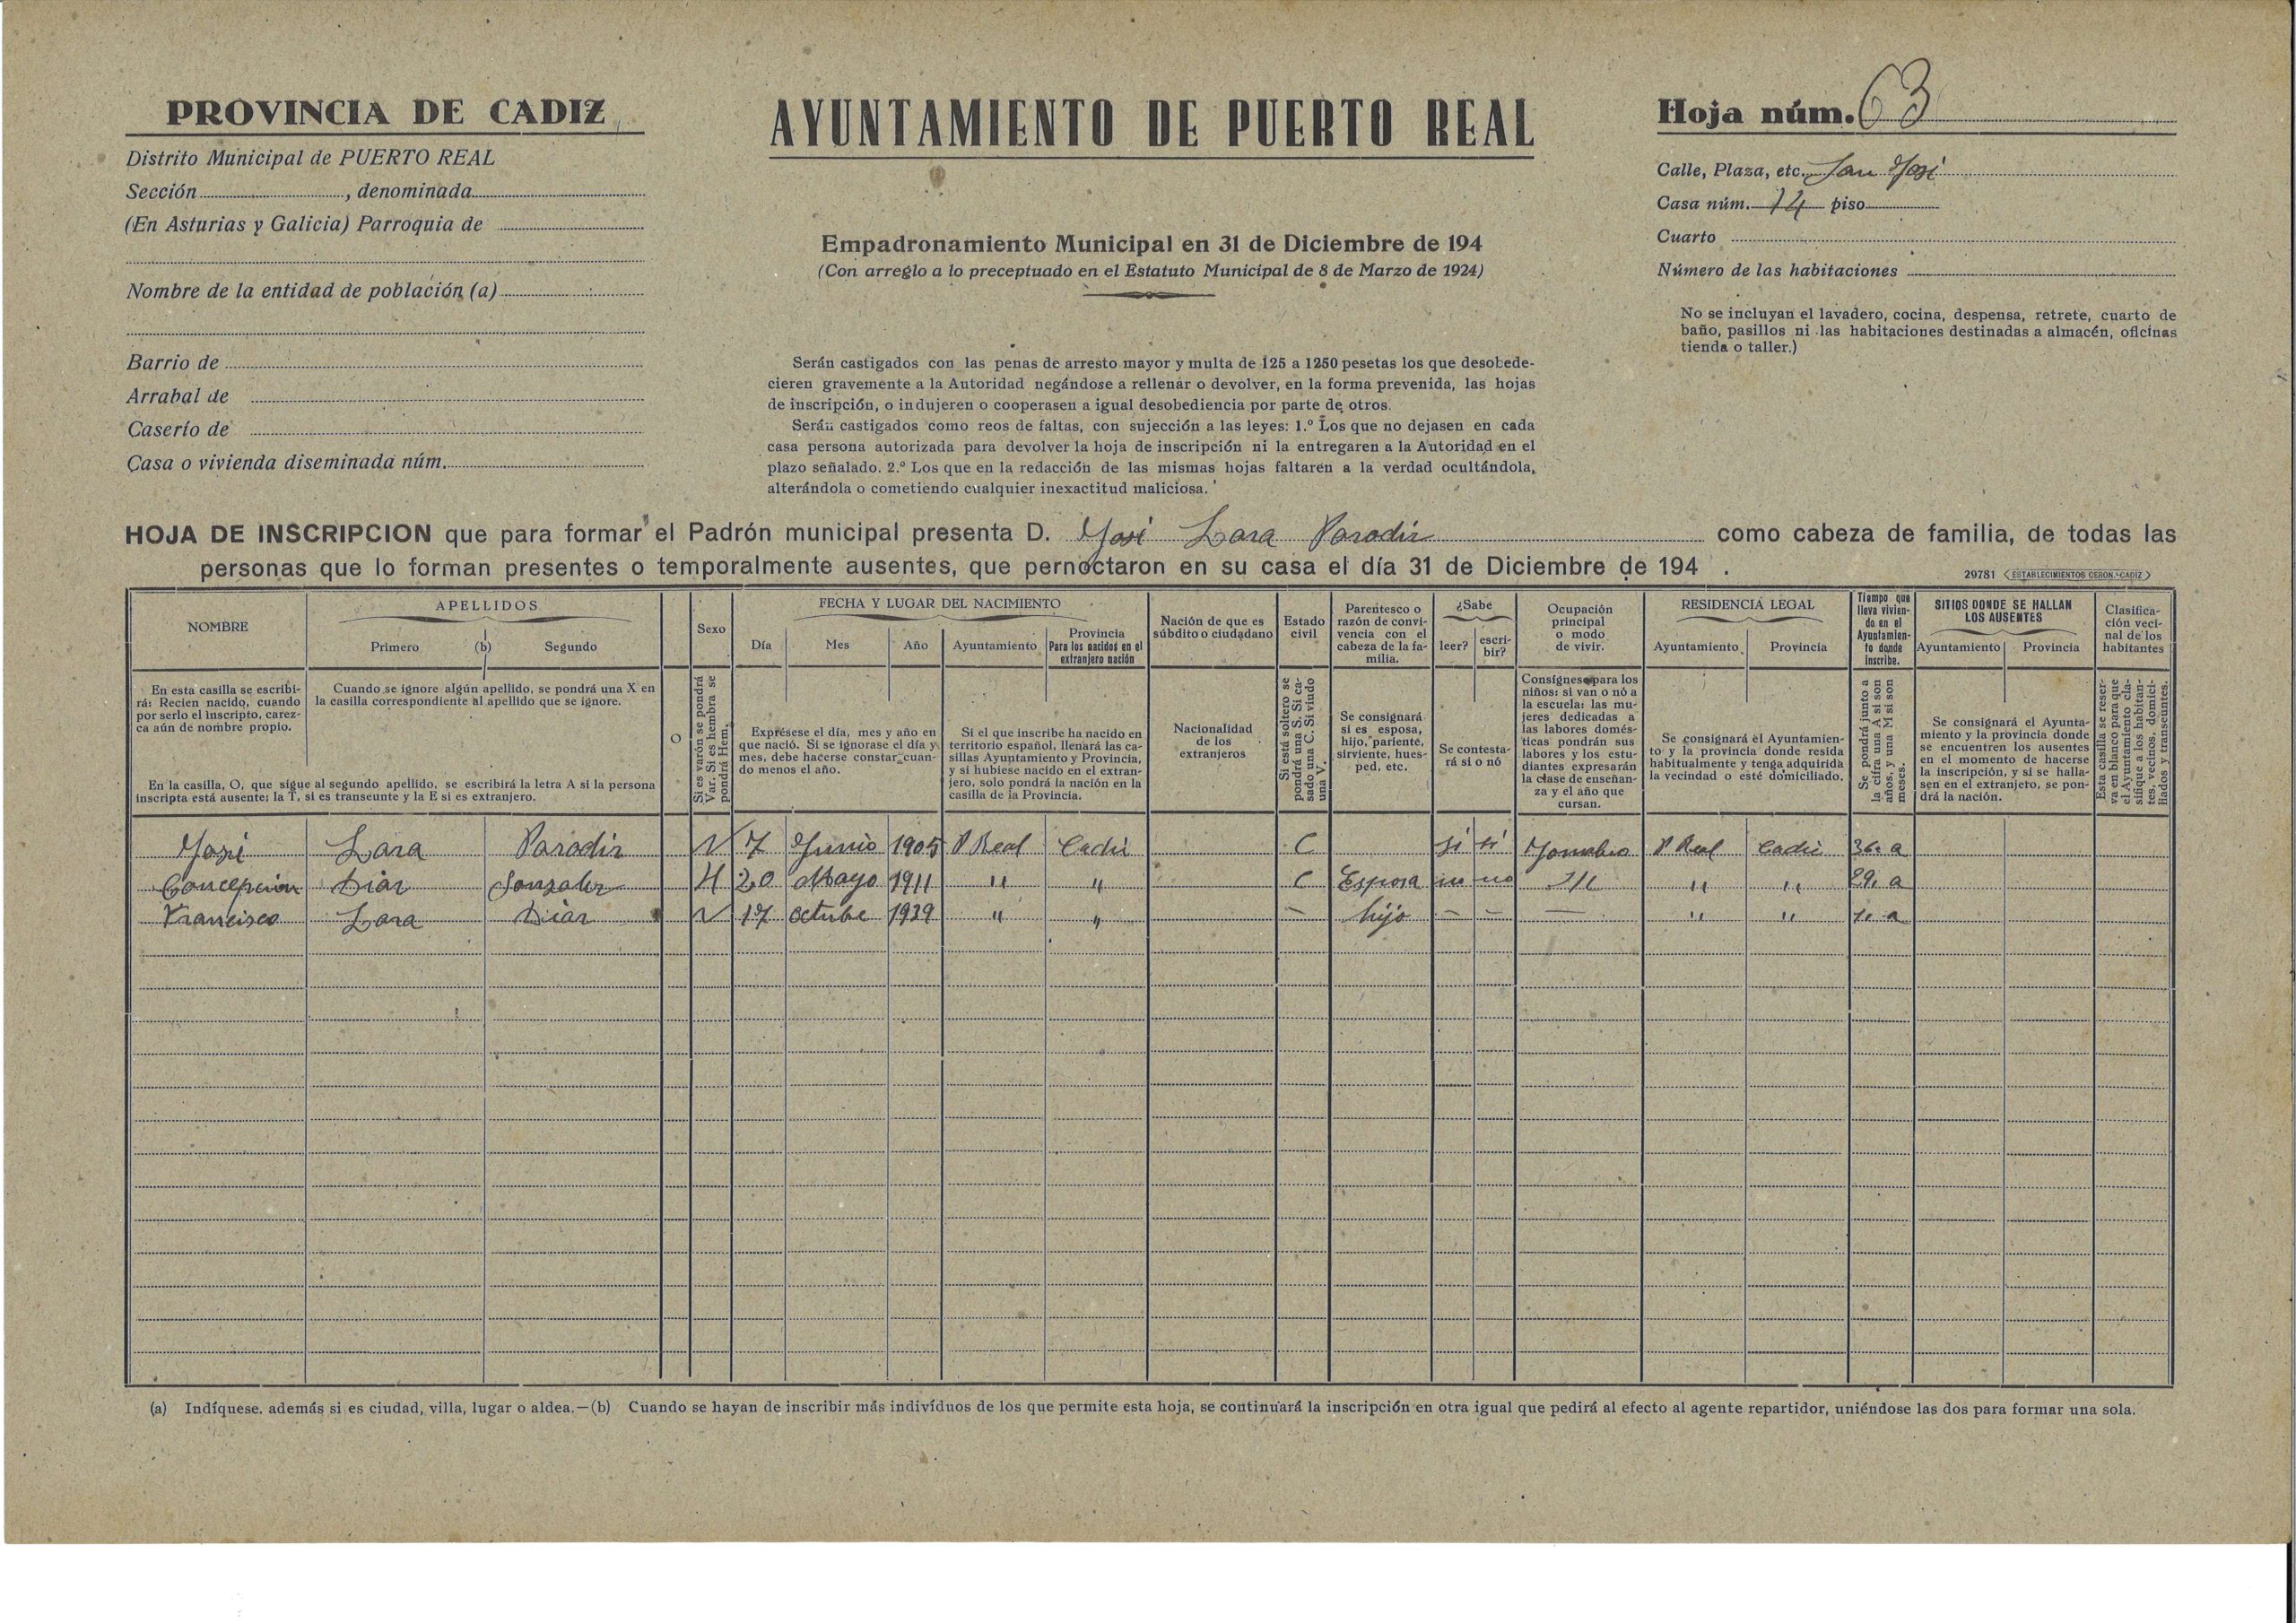 PROVINCIA DE CADIZ
Distrito Municipal de PUERTO REAL
Sección , denominada
(En Asturias y Galicia) Parroquia de
Nombre de la entidad de población (a)
Barrio de
Arrabal de
Caserío de
Casa o vivienda diseminada núm.
AYUNTAMIENTO DE PUERTO REAL
Empadronamiento Municipal en 31 de Diciembre de 194
(Con arreglo a lo preceptuado en el Estatuto Municipal de 8 de Marzo de 1924)
Serán castigados con las penas de arresto mayor y multa de 125 a 1250 pesetas los que desobede-
cieren gravemente a la Autoridad negándose a rellenar o devolver, en la forma prevenida, las hojas
de inscripción, o indujeren o cooperasen a igual desobediencia por parte de otros.
Serán castigados como reos de faltas, con sujección a las leyes: 1.º Los que no dejasen en cada
casa persona autorizada para devolver la hoja de inscripción ni la entregaren a la Autoridad en el
plazo señalado. 2.º Los que en la redacción de las mismas hojas faltaren a la verdad ocultándola,
alterándola o cometiendo cualquier inexactitud maliciosa.
Hoja núm. 63
Calle, Plaza, etc. San José
Casa núm. 14 piso
Cuarto
Número de las habitaciones
No se incluyan el lavadero, cocina, despensa, retrete, cuarto de
baño, pasillos ni las habitaciones destinadas a almacén, oficinas
tienda o taller.)
HOJA DE INSCRIPCION que para formar el Padrón municipal presenta D. José Lara Parodis como cabeza de familia, de todas las
personas que lo forman presentes o temporalmente ausentes, que pernoctaron en su casa el día 31 de Diciembre de 194 .
29781 (ESTABLECIMIENTOS CERON.-CADIZ)
NOMBRE
APELLIDOS
Primero (b) Segundo
O
Sexo
FECHA Y LUGAR DEL NACIMIENTO
Día Mes Año Ayuntamiento
Provincia
Para los nacidos en el
extranjero nación
Nación de que es
súbdito o ciudadano
Estado
civil
Parentesco o
razón de convi-
vencia con el
cabeza de la fa-
milia.
¿Sabe
leer? escri-
bir?
Ocupación
principal
o modo
de vivir.
RESIDENCIA LEGAL
Ayuntamiento Provincia
Tiempo que
lleva vivien-
do en el
Ayuntamien-
to donde
inscribe.
SITIOS DONDE SE HALLAN
LOS AUSENTES
Ayuntamiento Provincia
Clasifica-
ción veci-
nal de los
habitantes
En esta casilla se escribi-
rá: Recien nacido, cuando
por serlo el inscripto, carez-
ca aún de nombre propio.
Cuando se ignore algún apellido, se pondrá una X en
la casilla correspondiente al apellido que se ignore.
En la casilla, O, que sigue al segundo apellido, se escribirá la letra A si la persona
inscripta está ausente; la T, si es transeunte y la E si es extranjero.
Si es varón se pondrá
Var. Si es hembra se
pondrá Hem.
Expresese el día, mes y año en
que nació. Si se ignorase el día y
mes, debe hacerse constar cuan-
do menos el año.
Si el que inscribe ha nacido en
territorio español, llenará las ca-
sillas Ayuntamiento y Provincia,
y si hubiese nacido en el extran-
jero, solo pondrá la nación en la
casilla de la Provincia.
Nacionalidad
de los
extranjeros
Si está soltero se
pondrá una S. Si ca-
sado una C. Si viudo
una V.
Se consignará
si es esposa,
hijo, pariente,
sirviente, hues-
ped, etc.
Se contesta-
rá si o nó
Consígnese para los
niños: si van o nó a
la escuela: las mu-
jeres dedicadas a
las labores domés-
ticas pondrán sus
labores y los estu-
diantes expresarán
la clase de enseñan-
za y el año que
cursan.
Se consignará el Ayuntamien-
to y la provincia donde resida
habitualmente y tenga adquirida
la vecindad o esté domiciliado.
Se pondrá junto a
la cifra una A si son
años, y una M si son
meses.
Se consignará el Ayunta-
miento y la provincia donde
se encuentren los ausentes
en el momento de hacerse
la inscripción, y si se halla-
sen en el extranjero, se pon-
drá la nación.
Esta casilla se reser-
va en blanco para que
el Ayuntamiento cla-
sifique a los habitan-
tes, vecinos, domici-
liados y transeuntes.
José Lara Parodis V 7 Junio 1905 P Real Cadiz C si si P Real Cadiz 36. a
Concepcion Diaz Gonzalez H 20 Mayo 1911 " " C Esposa no no S/L " " 29. a
Francisco Lara Diaz V 17 octubre 1939 " " — hijo — — — " " 1. a
(a) Indíquese. además si es ciudad, villa, lugar o aldea.—(b) Cuando se hayan de inscribir más indivíduos de los que permite esta hoja, se continuará la inscripción en otra igual que pedirá al efecto al agente repartidor, uniéndose las dos para formar una sola.